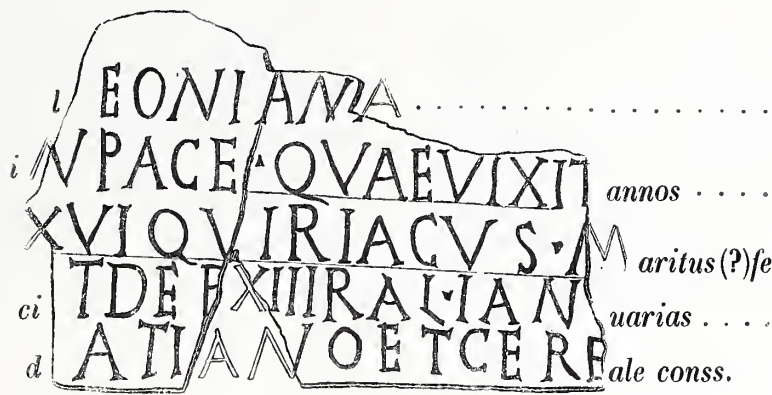 l EONIANA . . . . . . . . . . . . . . .
i NPACE·QVAEVIXIT annos . . . .
XVIQVIRIACVS·M aritus(?)fe
ci TDEPXIIIRAL·IAN uarias . . . .
d ATIANOETCERE ale conss.